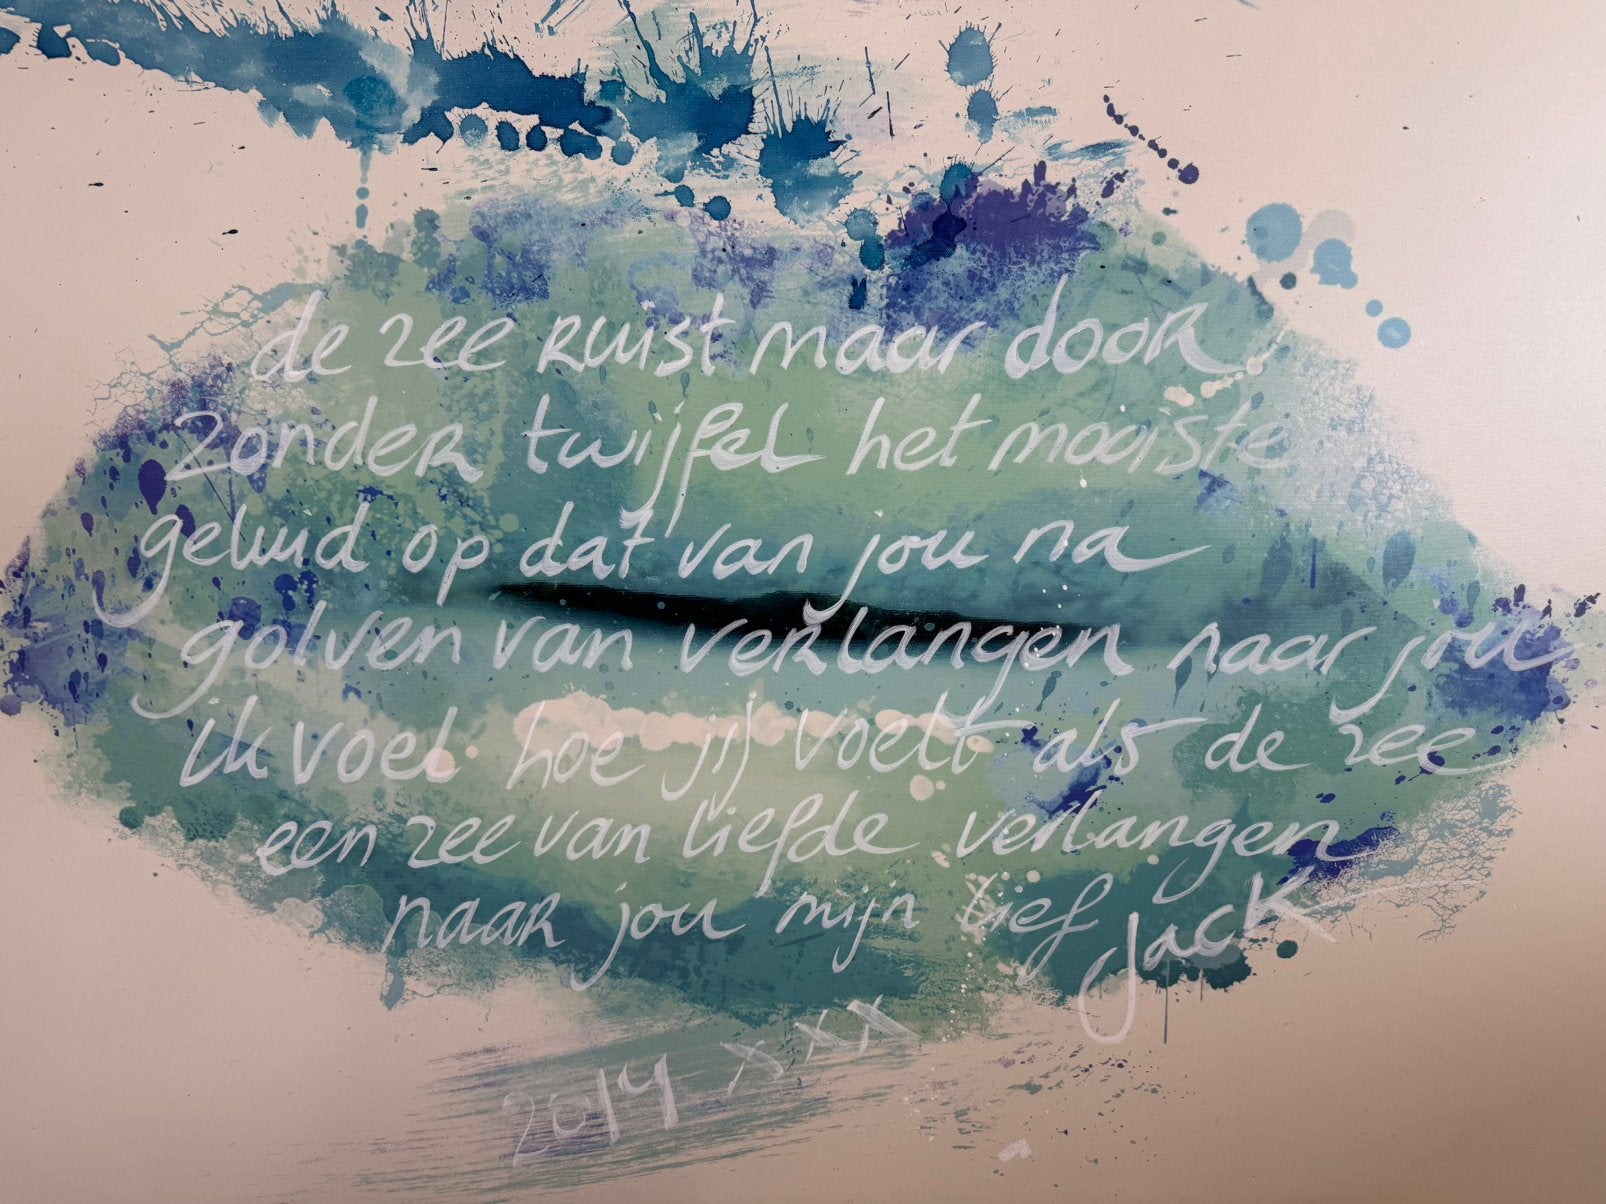 de zee ruist maar door
zonder twijfel het mooiste
geluid op dat van jou na
golven van verlangen naar jou
ik voel hoe jij voelt als de zee
een zee van liefde verlangen
naar jou mijn lief
Jack
2014 xxx